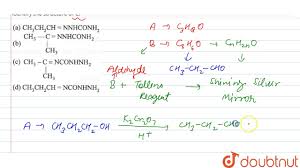 (a) CH₃CH₂CH = NNHCONH₂
(b) CH₃ – C = NNHCONH₂
CH₃
(c) CH₃ – C = NCONHNH₂
CH₃
(d) CH₃CH₂CH = NCONHNH₂
A → C₃H₈O
B → C₃H₆O
Aldehyde CH₃–CH₂–CHO
B + Tollens → Shining Silver
Reagent Mirror
A → CH₃CH₂CH₂–OH K₂Cr₂O₇ → CH₃–CH₂–CHO
H⁺
doubtnut